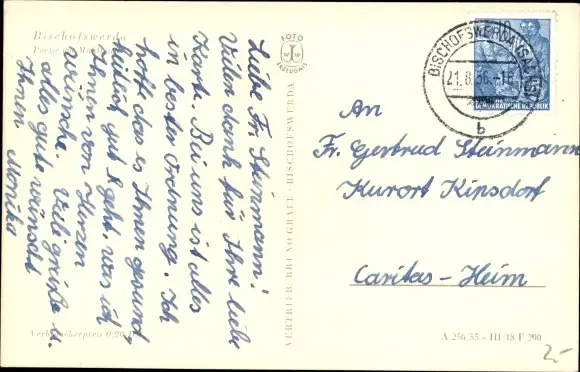 Bischofswerda
Partie am
Liebe Fr. Steinmann!
Vielen dank für Ihre liebe
Karte. Bei uns ist alles
in bester Ordnung. Ich
hoffe das es Ihnen gesund-
heitlich gut geht, was ich
Ihnen von Herzen
wünsche. Viele grüße u.
alles gute wünscht
Ihnen Monika
Verbraucherpreis 0,20
FOTO
ERZEUGNIS
VERTRIEB: BRUNO GRAFE - BISCHOFSWERDA
BISCHOFSWERDA (SA
21.8.56.-18
b
DEMOKRATISCHE REPUBLIK
An
Fr. Gertrud Steinmann
Kurort Kipsdorf
Caritas-Heim
A 256/55 – III/18/F 290
25-